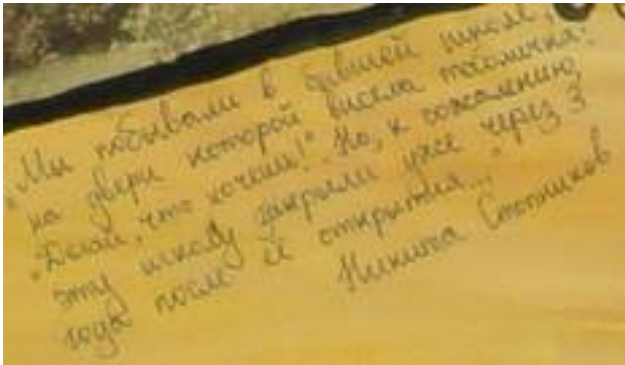 „Мы побывали в бывшей школе,
на двери которой висела табличка:
„Делай, что хочешь!" Но, к сожалению,
эту школу закрыли уже через 3
года после её открытия..."
Никита Стотников